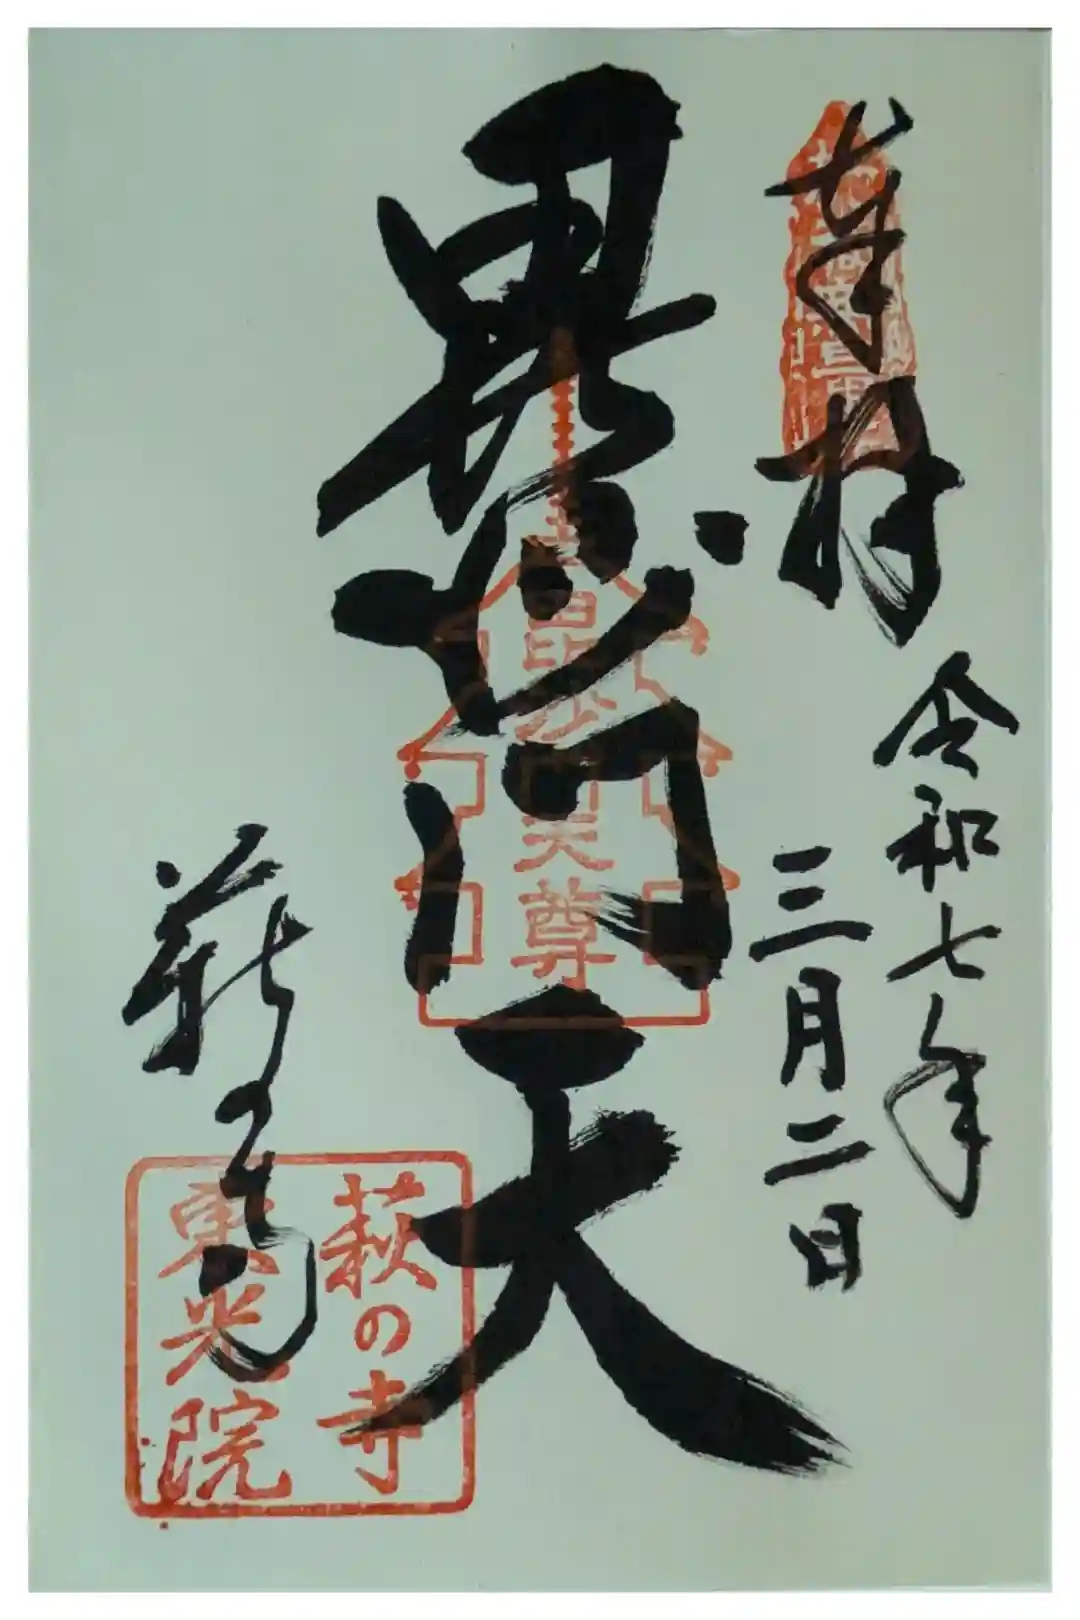 奉拝
令和七年
三月二日
毘沙門天
毘沙門天尊
萩の寺
萩の寺
東光院